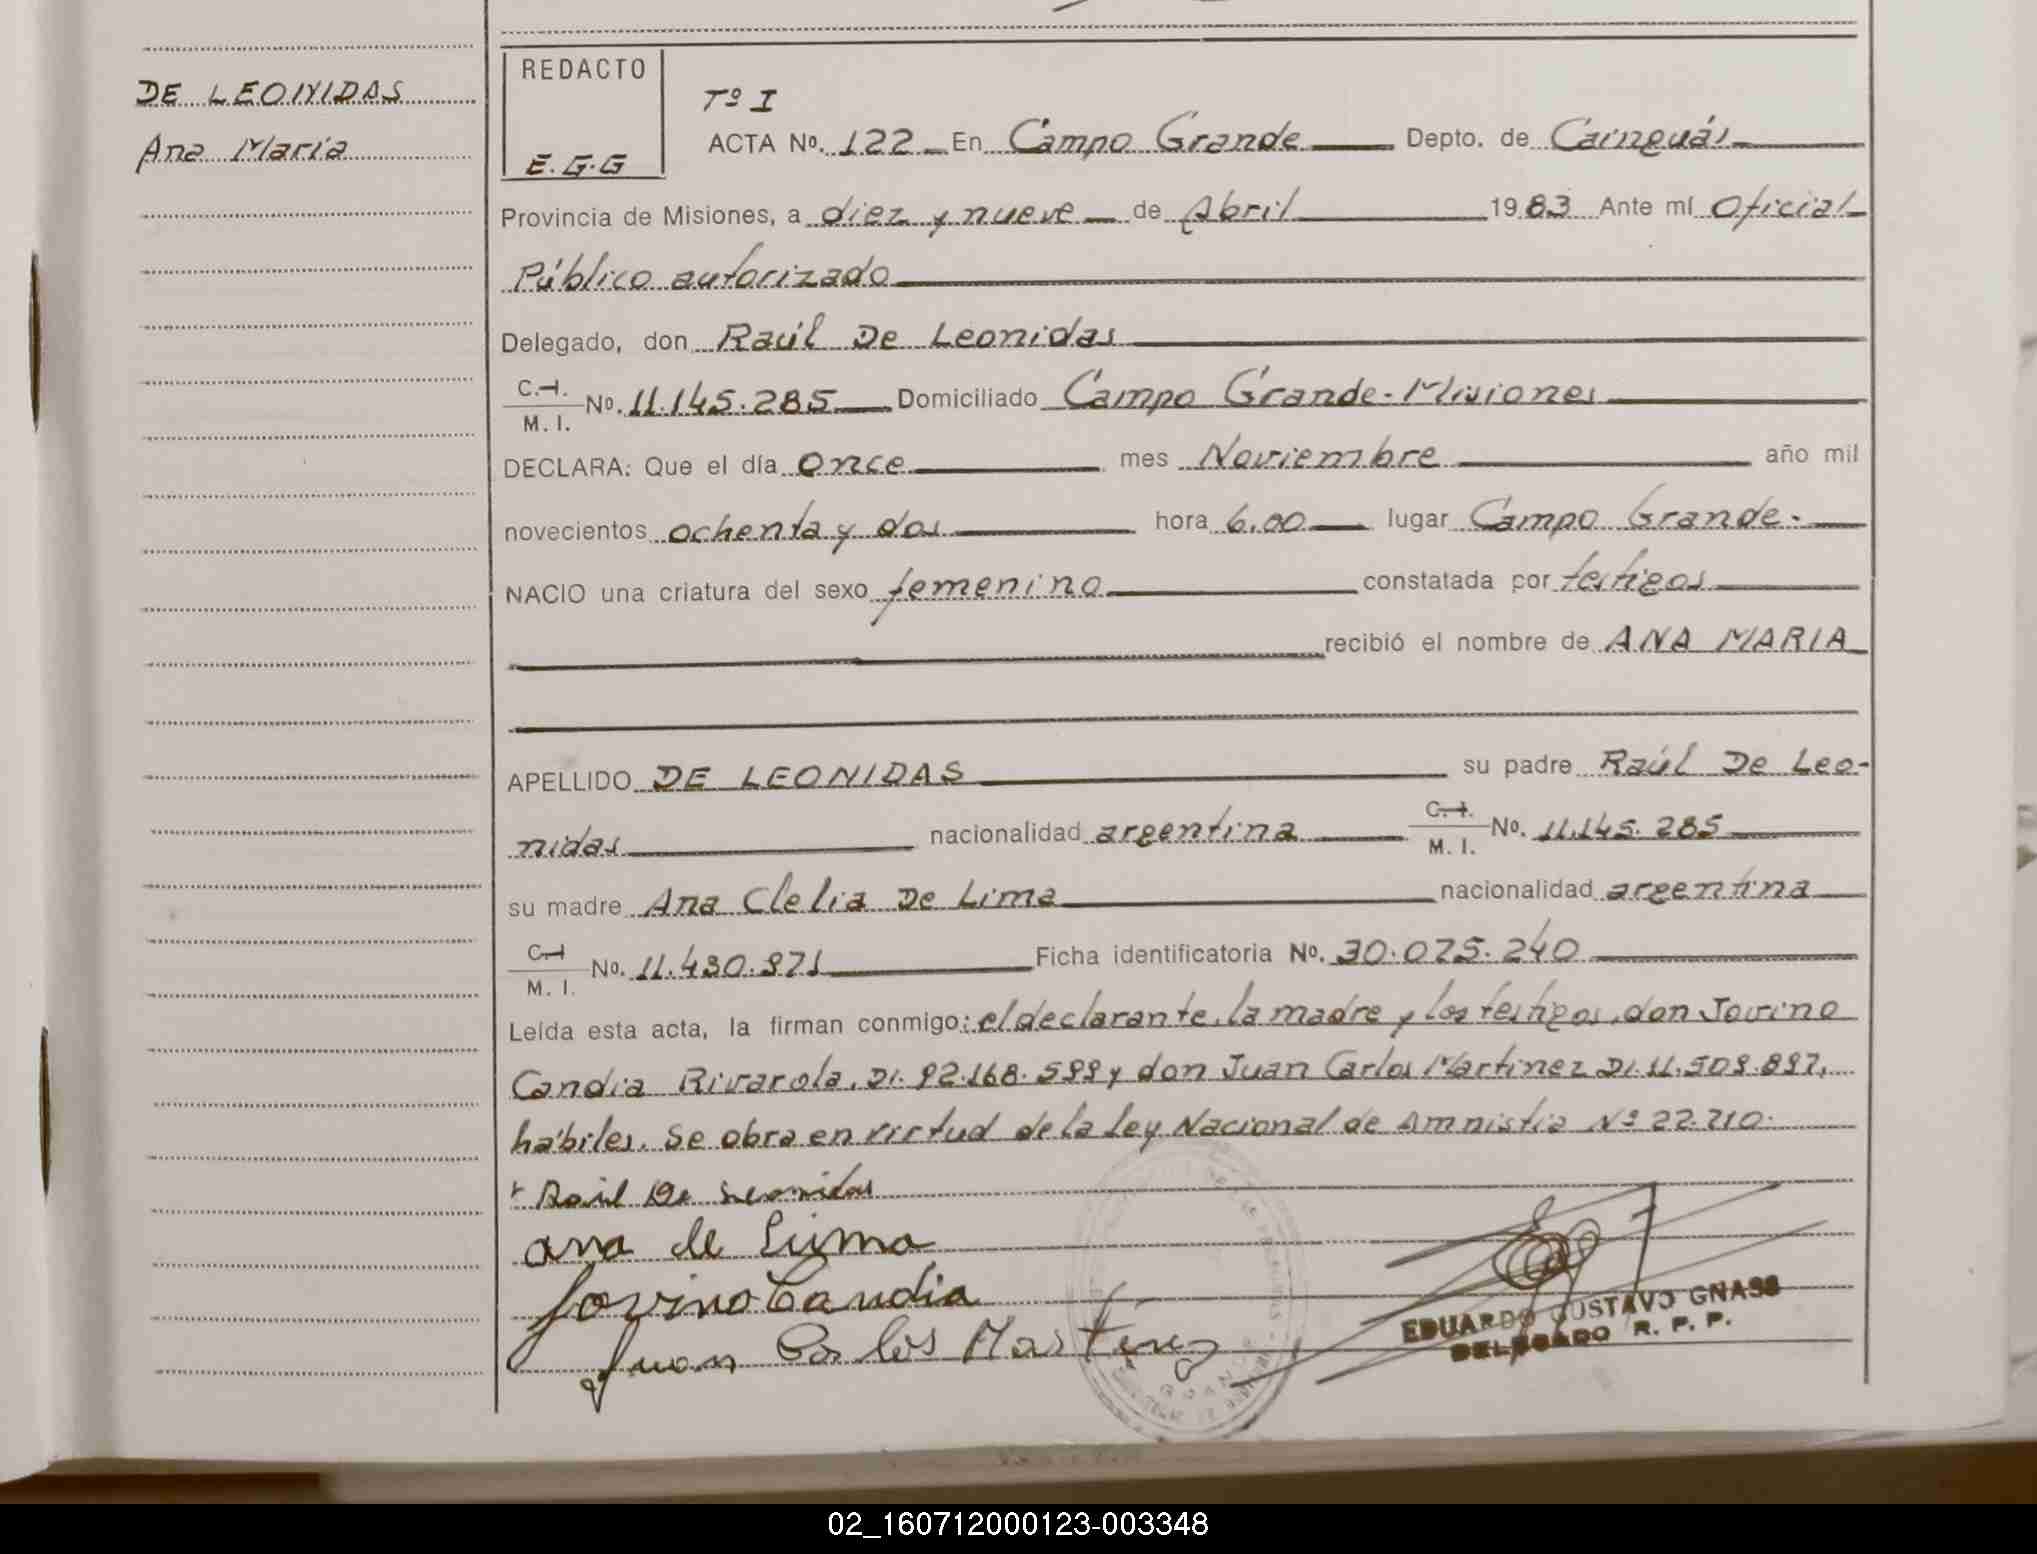 DE LEONIDAS
Ana María
REDACTO
E.G.G
Tº I
ACTA Nº. 122 En Campo Grande Depto. de Cainguás
Provincia de Misiones, a diez y nueve de Abril 1983 Ante mí Oficial
Público autorizado
Delegado, don Raúl De Leonidas
C.I. M. I. Nº. 11.145.285 Domiciliado Campo Grande-Misiones
DECLARA: Que el día once mes Noviembre año mil
novecientos ochenta y dos hora 6.00 lugar Campo Grande.
NACIO una criatura del sexo femenino constatada por testigos
recibió el nombre de ANA MARIA
APELLIDO DE LEONIDAS su padre Raúl De Leo-
nidas nacionalidad argentina C.I. M. I. Nº. 11.145.285
su madre Ana Clelia De Lima nacionalidad argentina
C.I. M. I. Nº. 11.430.971 Ficha identificatoria Nº. 30.075.240
Leída esta acta, la firman conmigo: el declarante, la madre y los testigos, don Jovino
Candia Rivarola, DI. 92.168.599 y don Juan Carlos Martinez DI. 11.509.897,
hábiles. Se obra en virtud de la Ley Nacional de Amnistía Nº 22.710.
Raúl De Leonidas
Ana de Lima
Jovino Candia
Juan Carlos Martinez
EDUARDO GUSTAVO GNASS
DELEGADO R. P. P.
02_160712000123-003348